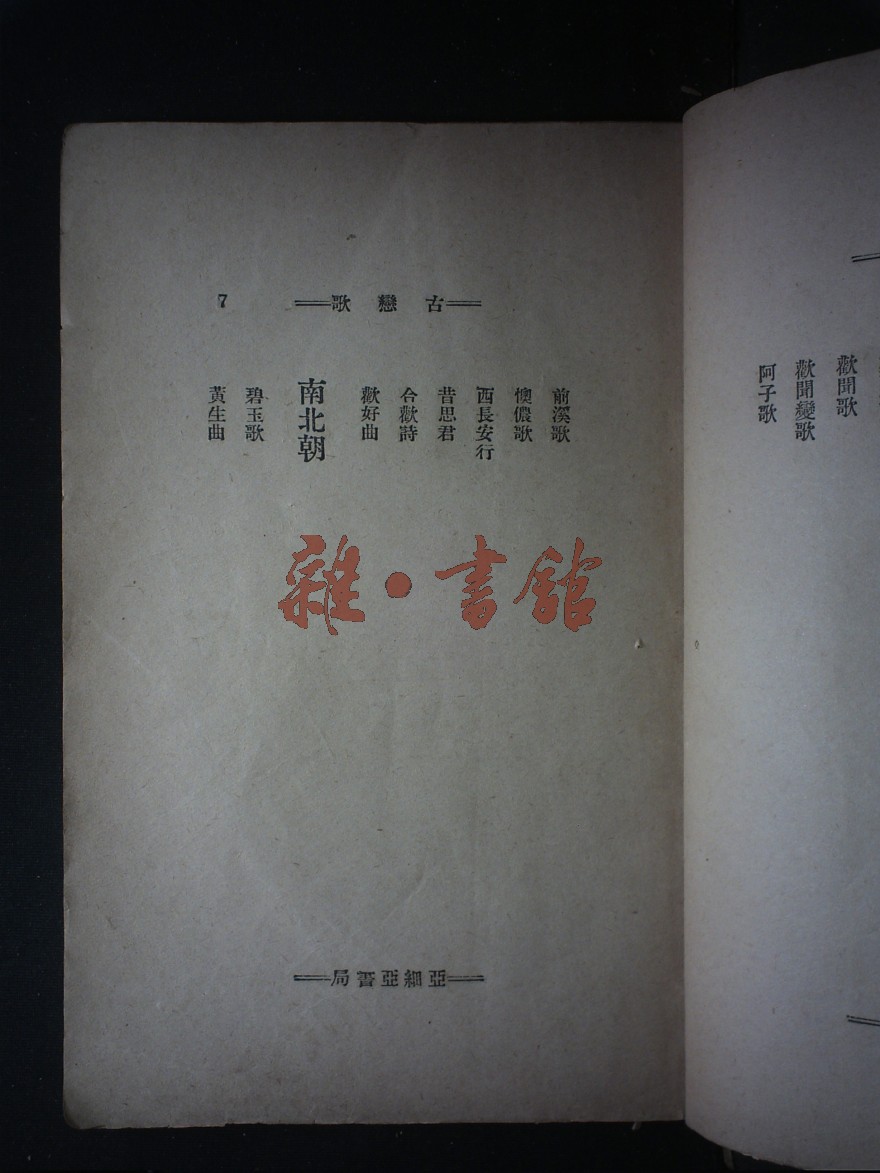 歡聞歌
歡聞變歌
阿子歌
古戀歌
7
前溪歌
懊儂歌
西長安行
昔思君
合歡詩
歡好曲
南北朝
碧玉歌
黃生曲
雜·書館
亞細亞書局